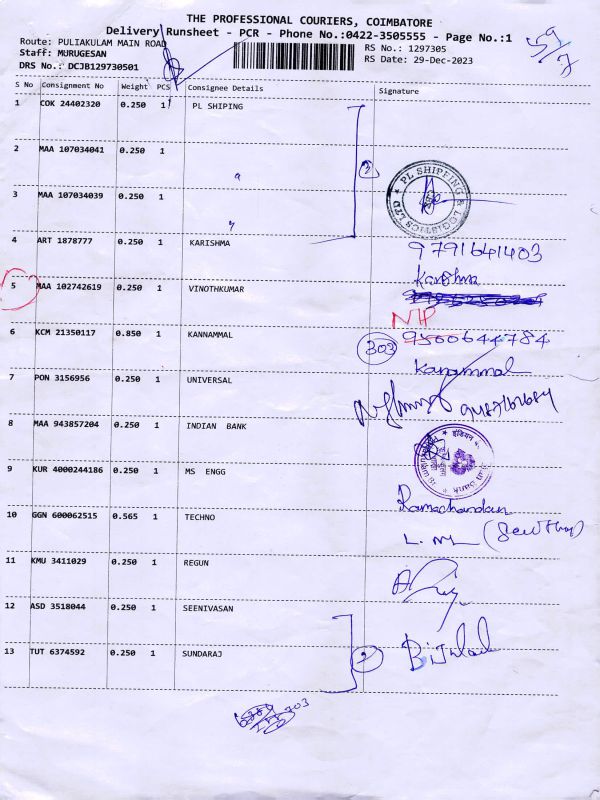 THE PROFESSIONAL COURIERS, COIMBATORE
Delivery Runsheet - PCR - Phone No.:0422-3505555 - Page No.:1
59/7
Route: PULIAKULAM MAIN ROAD
RS No.: 1297305
Staff: MURUGESAN
RS Date: 29-Dec-2023
DRS No.: DCJB129730501
S No Consignment No Weight PCS Consignee Details Signature
1 COK 24402320 0.250 1 PL SHIPING
2 MAA 107034041 0.250 1
3
PL SHIPPING & LOGISTICS LTD
3 MAA 107034039 0.250 1
4 ART 1878777 0.250 1 KARISHMA
9791641403
Karishma
5 MAA 102742619 0.250 1 VINOTHKUMAR
NIP
6 KCM 21350117 0.850 1 KANNAMMAL
303 9500644784
Kanammal
7 PON 3156956 0.250 1 UNIVERSAL
8 MAA 943857204 0.250 1 INDIAN BANK
9 KUR 4000244186 0.250 1 MS ENGG
Ramachandran
10 GGN 600062515 0.565 1 TECHNO
11 KMU 3411029 0.250 1 REGUN
12 ASD 3518044 0.250 1 SEENIVASAN
13 TUT 6374592 0.250 1 SUNDARAJ
2
303